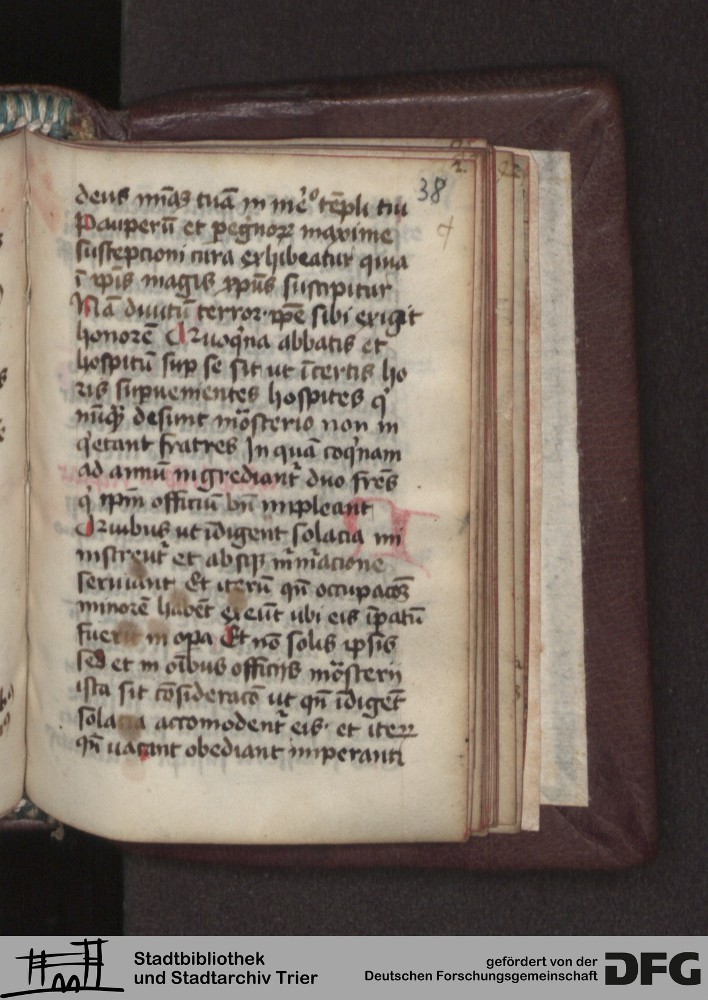 deus mīaꝫ tuā in me͛º tēpli tui
38
Pauperū et pegnoꝝ maxime
susceptioni cura exhibeatur quia
ī ip̄is magis xp̄us suscipitur
Nā diuitū terror ip̄e sibi exigit
honorē Cuoq̄na abbatis et
hospitū sup se sit ut īcertis ho
ris supueuientes hospites q̇
nūqꝫ desunt mōsterio non in
q̇etant fratres In quā coq̄nam
ad annū ingrediant᷑ duo fr̄es
q̇ ip̄m officiū bn̄ impleant
Quibus ut īdigent solacia mi
nistrent᷑ et absqꝫ mᷓmᷓacione
seruiant Et iterū qn̄ occupacōꝫ
minorē habēt exeūt ubi eis īpatū
fuerit in opa Et nō solis ipsis
sed et in oībus officijs mōsterii
ista sit cōsideracō ut qn̄ īdigēt
solacia accomodent᷑ eis· et iteꝝ
qn̄ uacant obediant imperanti
Stadtbibliothek
und Stadtarchiv Trier
gefördert von der
Deutschen Forschungsgemeinschaft
DFG